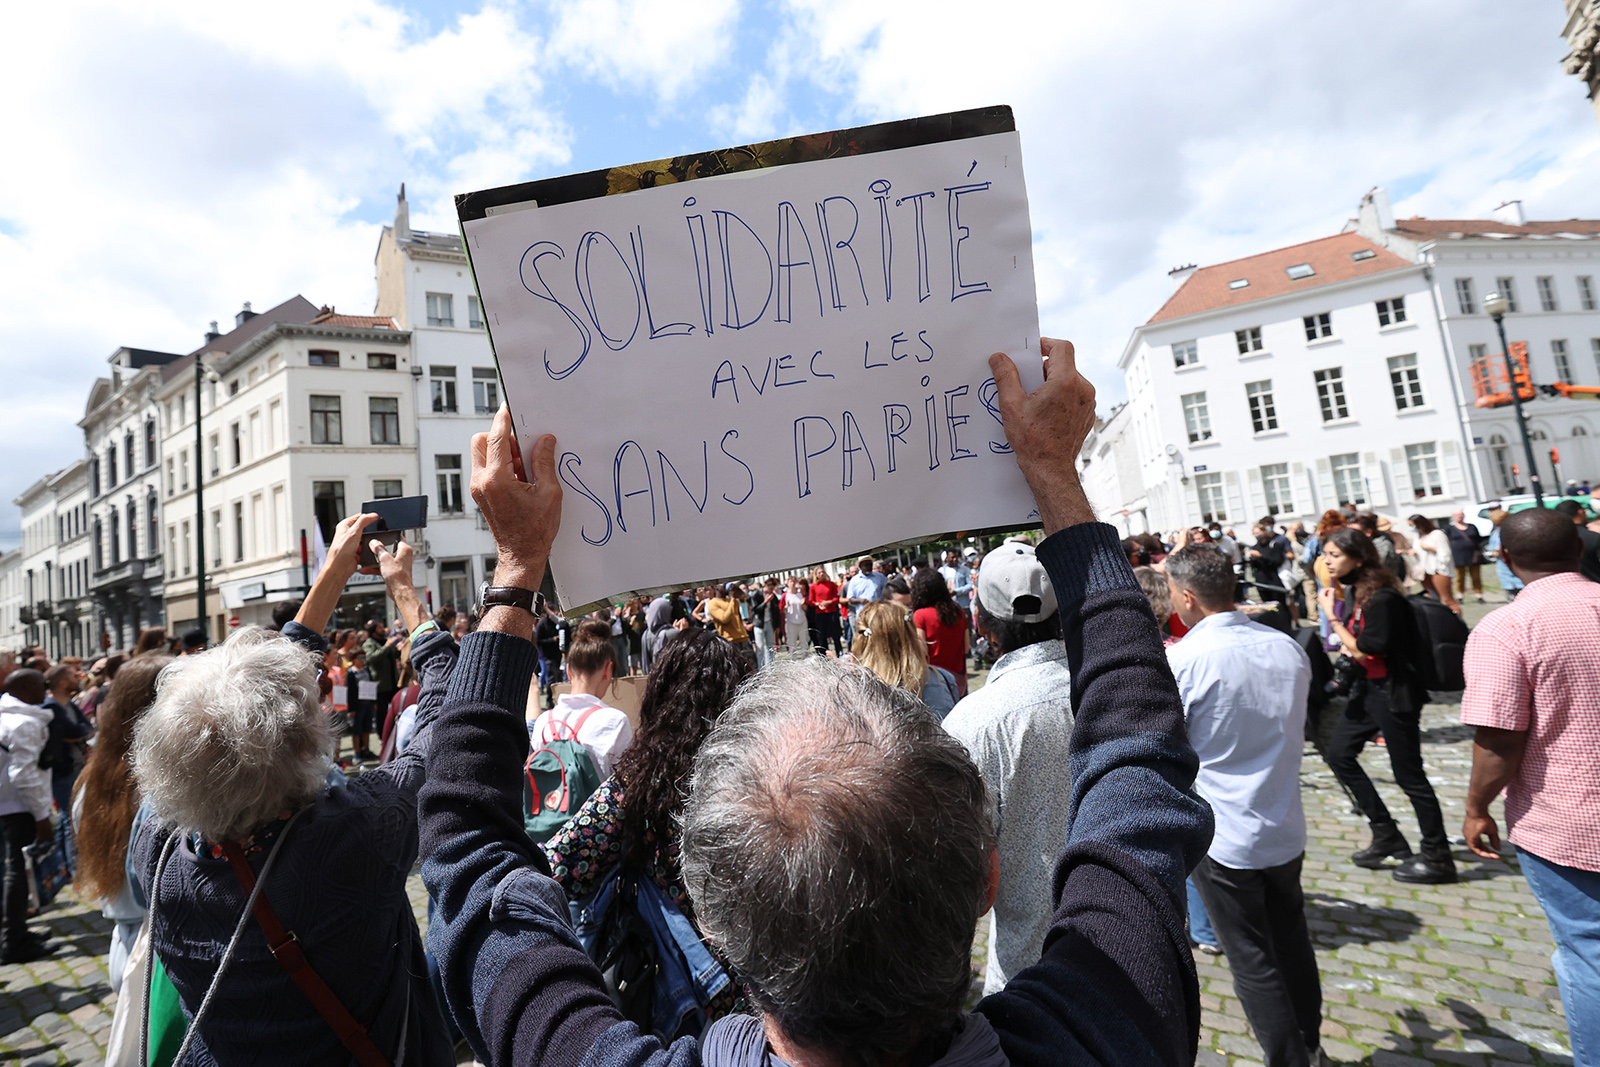 SOLIDARITÉ
AVEC LES
SANS PAPIES